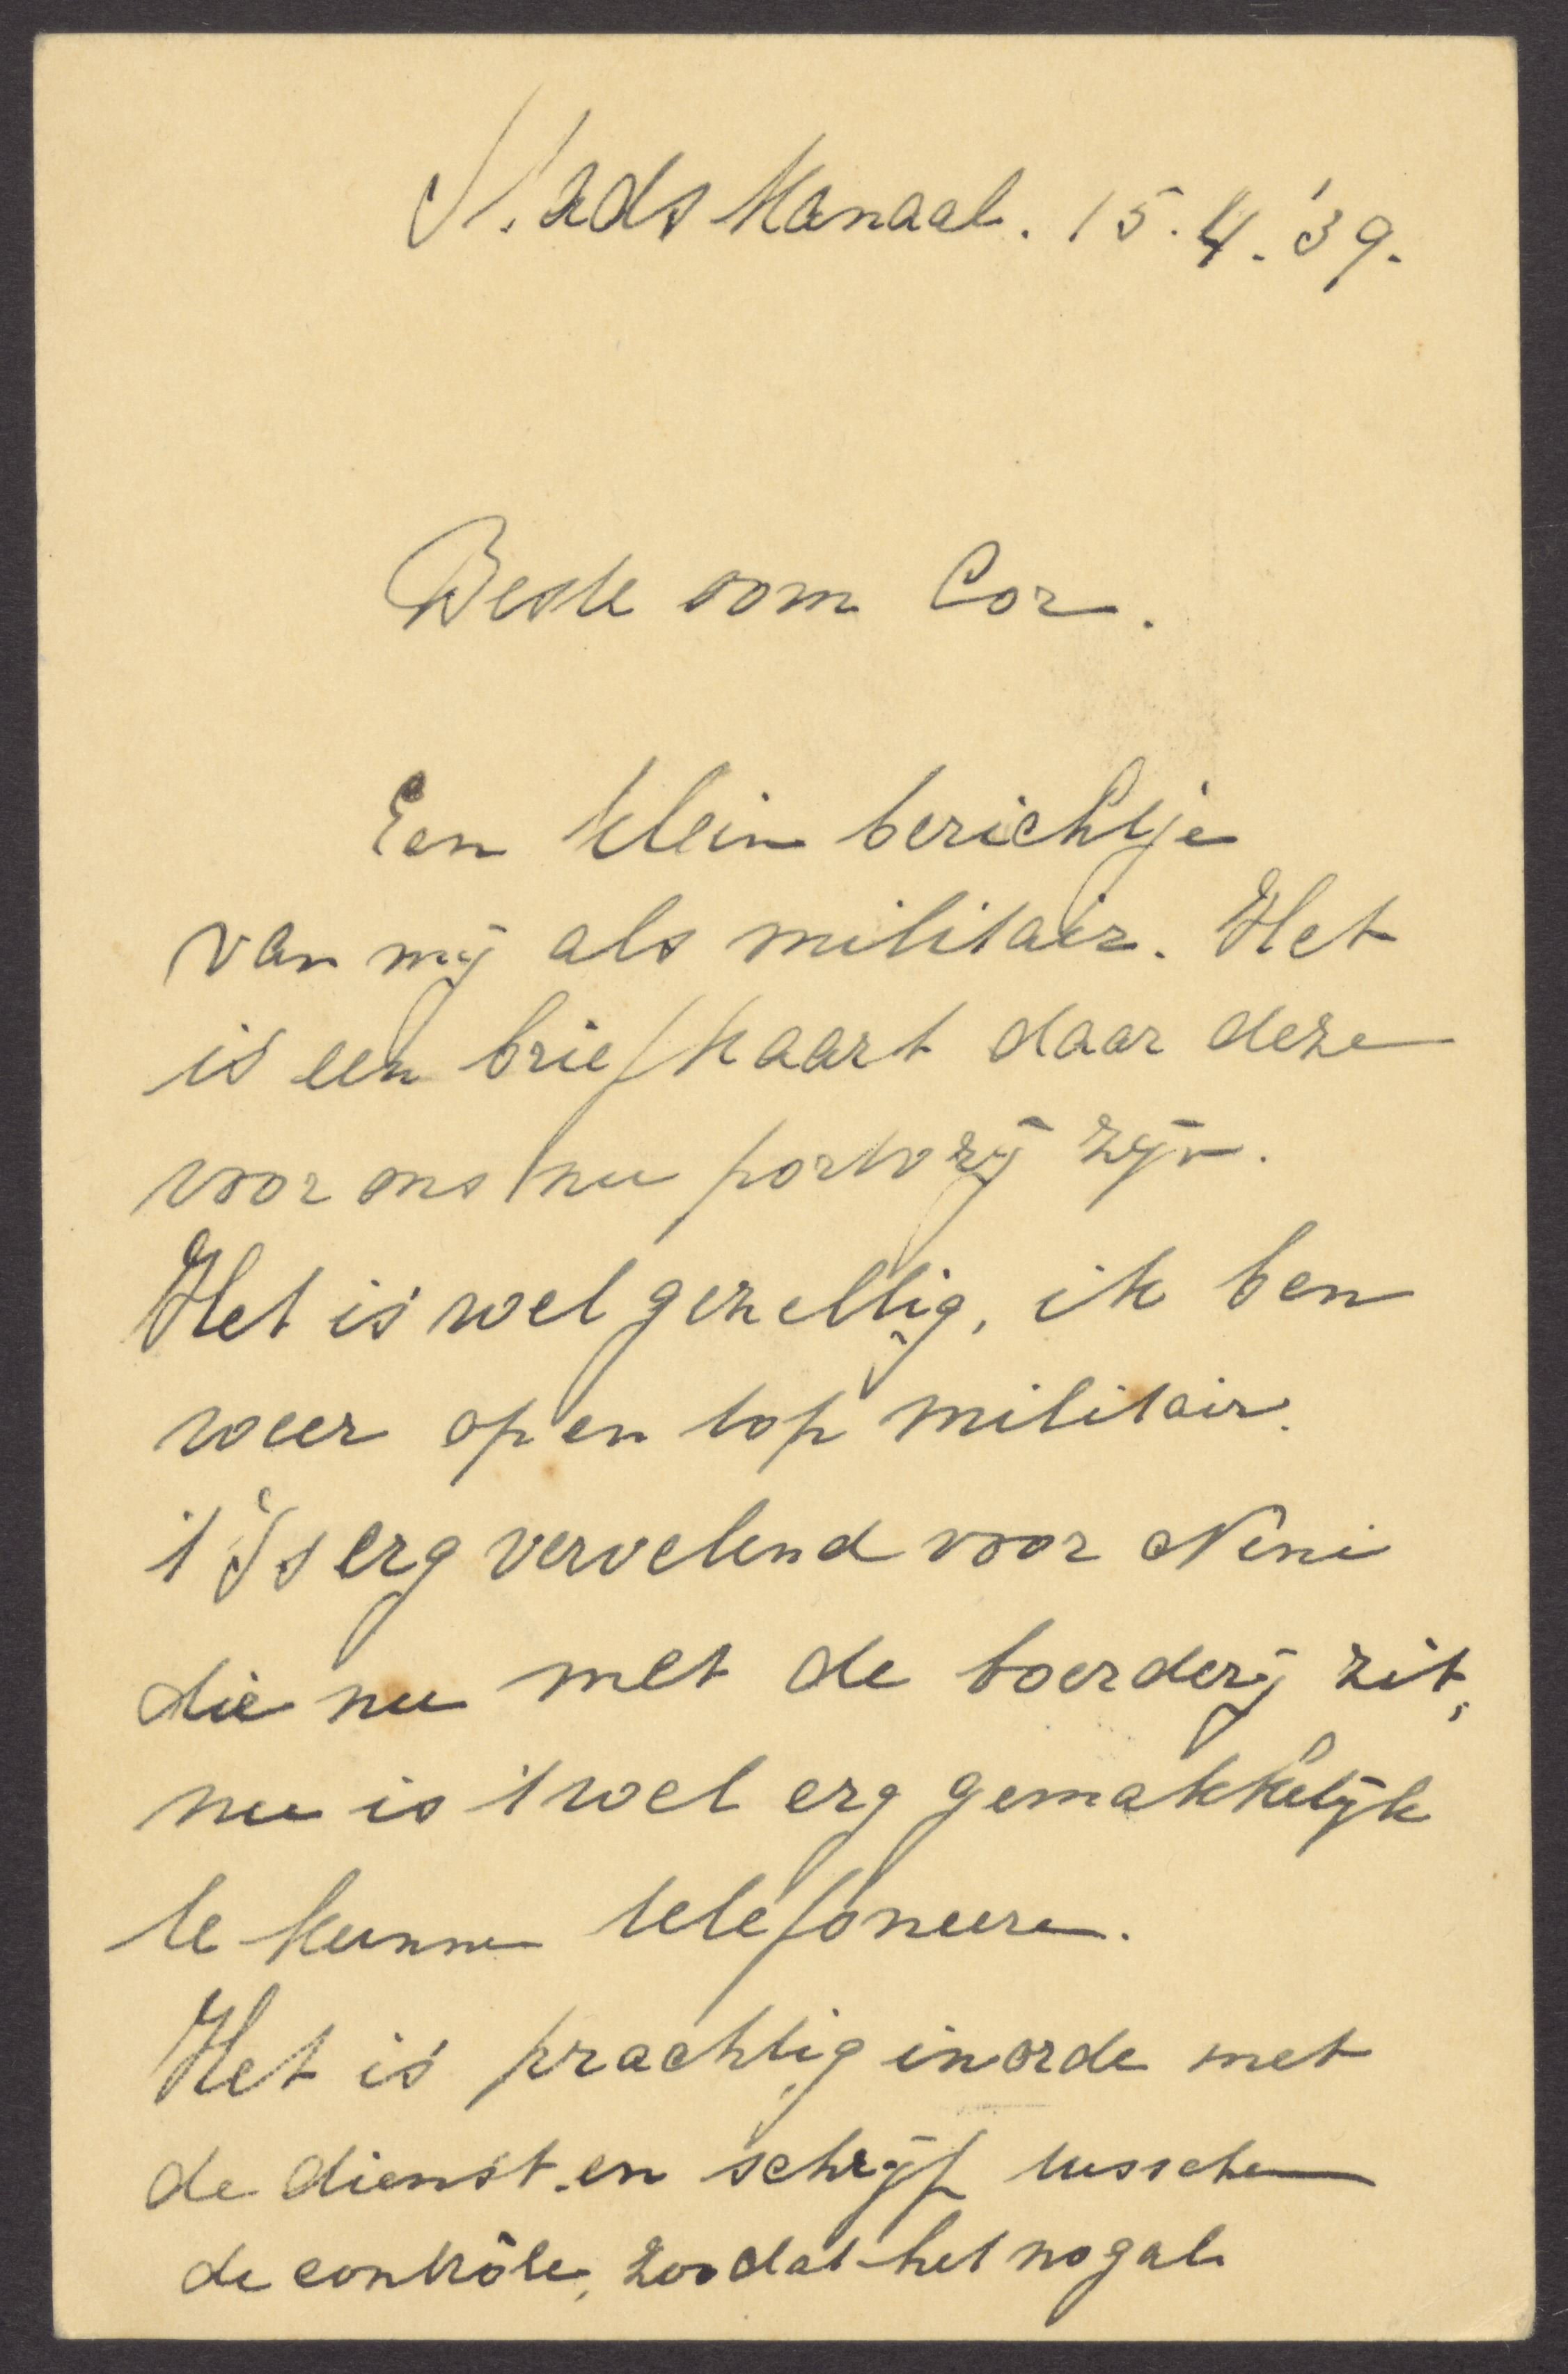 St. ads Kanaal. 15.4.'39.
Beste oom Cor.
Een klein berichtje
van mij als militair. Het
is een briefkaart daar deze
voor ons nu portvrij zijn.
Het is wel gezellig, ik ben
weer op en top militair.
't Is erg vervelend voor Neni
die nu met de boerderij zit,
nu is 't wel erg gemakkelijk
te kunnen telefoneeren.
Het is prachtig in orde met
de dienst en schrijf tusschen
de contrôle, zoodat het nogal